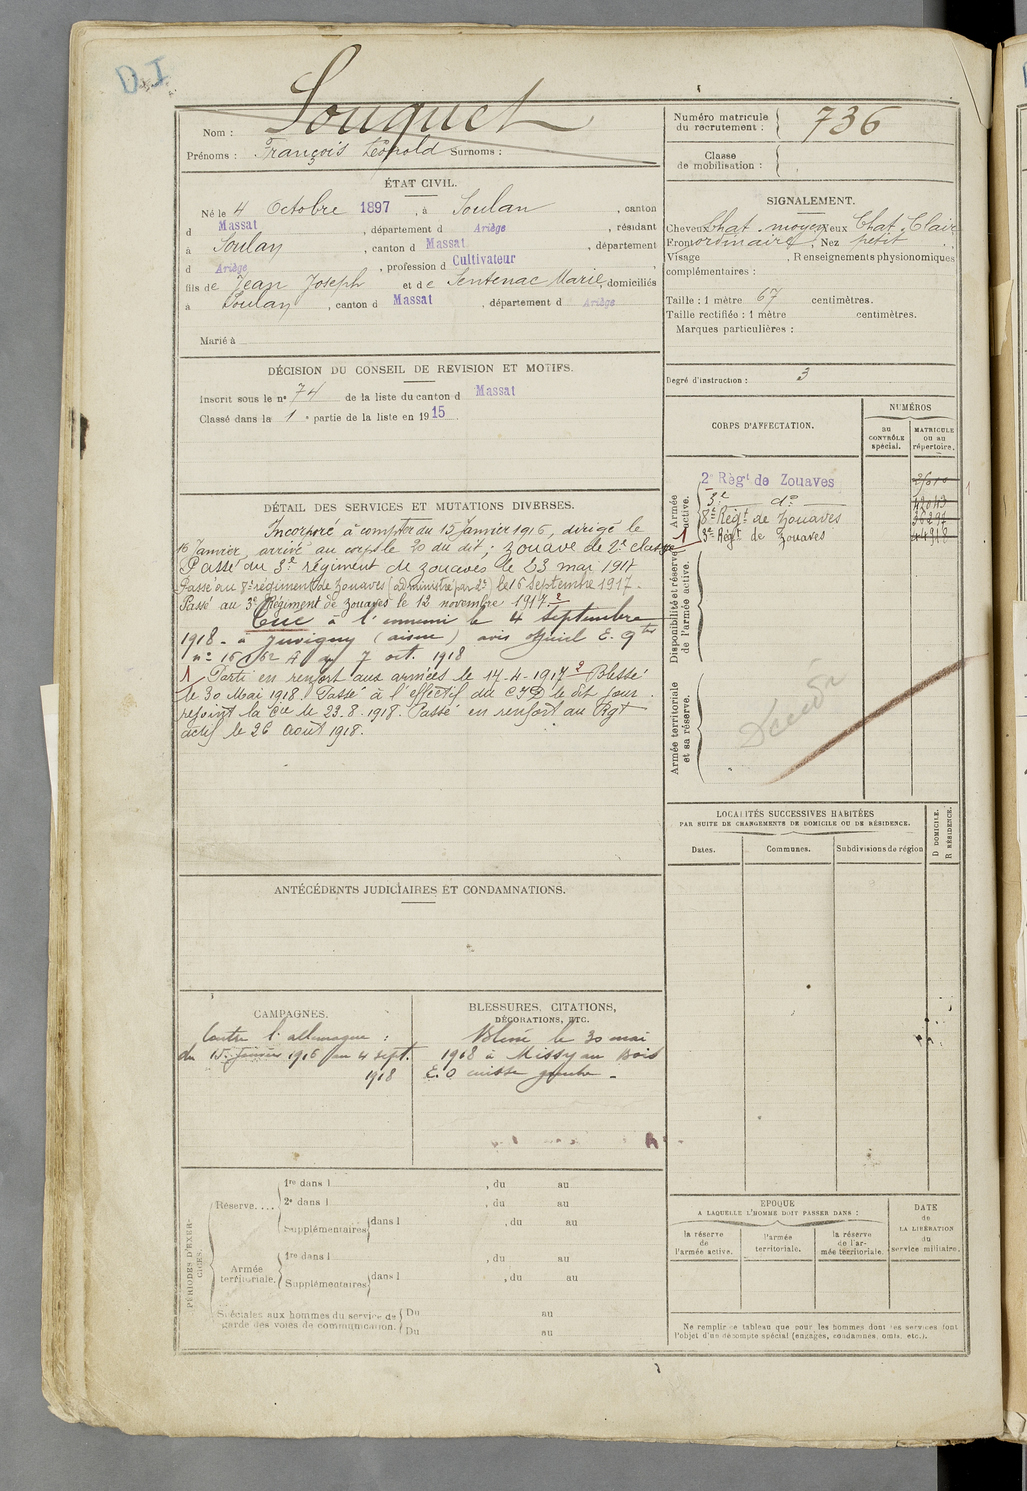 D.I
Nom : Souquet
Prénoms : François Léopold Surnoms :
Numéro matricule
du recrutement : 736
Classe
de mobilisation :
ÉTAT CIVIL.
Né le 4 Octobre 1897, à Soulan, canton
d Massat, département d Ariège, résidant
à Soulan, canton d Massat, département
d Ariège, profession d Cultivateur
fils de Jean Joseph et de Sentenac Marie, domiciliés
à Soulan, canton d Massat, département d Ariège
Marié à
SIGNALEMENT.
Cheveux Chat. moyen Yeux Chat. Clair
Front ordinaire, Nez petit
Visage , Renseignements physionomiques
complémentaires :
Taille : 1 mètre 67 centimètres.
Taille rectifiée : 1 mètre centimètres.
Marques particulières :
Degré d'instruction : 3
DÉCISION DU CONSEIL DE REVISION ET MOTIFS.
Inscrit sous le n° 74 de la liste du canton d Massat
Classé dans la 1e partie de la liste en 1915
CORPS D'AFFECTATION.
NUMÉROS
au
CONTRÔLE
spécial.
MATRICULE
ou au
répertoire.
Armée
active.
2e Régt de Zouaves
3e do
8e Régt de Zouaves
1 3e Régt de Zouaves
1
Disponibilité et réserve
de l'armée active.
Armée territoriale
et sa réserve.
Décédé
DÉTAIL DES SERVICES ET MUTATIONS DIVERSES.
Incorporé à compter du 15 Janvier 1916, dirigé le
16 Janvier, arrivé au corps le 20 du dit, zouave de 2e classe
Passé au 3e régiment de zouaves le 23 mai 1917
Passé au régiment de Zouaves (administré par 2e) le 16 Septembre 1917.
Passé au 3e Régiment de Zouaves le 12 novembre 1917
Tué à l'ennemi le 4 septembre
1918 - à Juvigny (aisne) avis officiel
du 7 oct. 1918
1 Parti en renfort aux armées le 14-4-1917 Blessé
le 30 Mai 1918. Passé à l'effectif du CID le dit jour.
rejoint la Cie le 23-8-1918. Passé en renfort au Rgt
actif le 26 Août 1918.
LOCALITÉS SUCCESSIVES HABITÉES
PAR SUITE DE CHANGEMENTS DE DOMICILE OU DE RÉSIDENCE.
Dates.
Communes.
Subdivisions de région
D DOMICILE.
R RÉSIDENCE.
ANTÉCÉDENTS JUDICIAIRES ET CONDAMNATIONS.
CAMPAGNES.
Contre l'allemagne :
du 15 Janvier 1916 au 4 sept.
1918
BLESSURES, CITATIONS,
DÉCORATIONS, ETC.
Blessé le 30 mai
1918 à Missy au Bois
E.O cuisse gauche -
PÉRIODES D'EXER-
CICES.
Réserve....
1re dans l , du au
2e dans l , du au
Supplémentaires dans l , du au
Armée
territoriale.
1re dans l , du au
Supplémentaires dans l , du au
Spéciales aux hommes du service de
garde des voies de communication.
Du au
Du au
EPOQUE
A LAQUELLE L'HOMME DOIT PASSER DANS :
la réserve
de
l'armée active.
l'armée
territoriale.
la réserve
de l'ar-
mée territoriale.
DATE
de
LA LIBÉRATION
du
service militaire.
Ne remplir ce tableau que pour les hommes dont les services font
l'objet d'un décompte spécial (engagés, condamnés, omis, etc.).